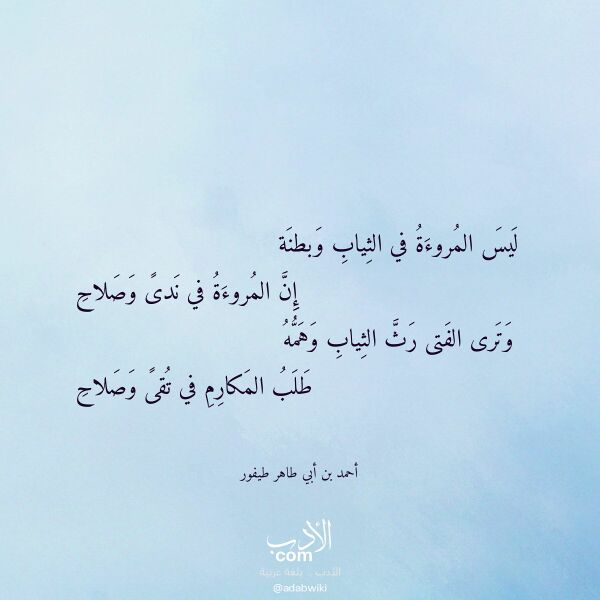 لَيسَ المُروءَةُ في الثِيابِ وَبطنَة
إِنَّ المُروءَةُ في نَدىً وَصَلاحِ
وَتَرى الفَتى رَثَّ الثِيابِ وَهَمُّهُ
طَلَبُ المَكارِمِ في تُقىً وَصَلاحِ
أحمد بن أبي طاهر طيفور
الأدب
com
الأدب .. بلغة عربية
@adabwiki